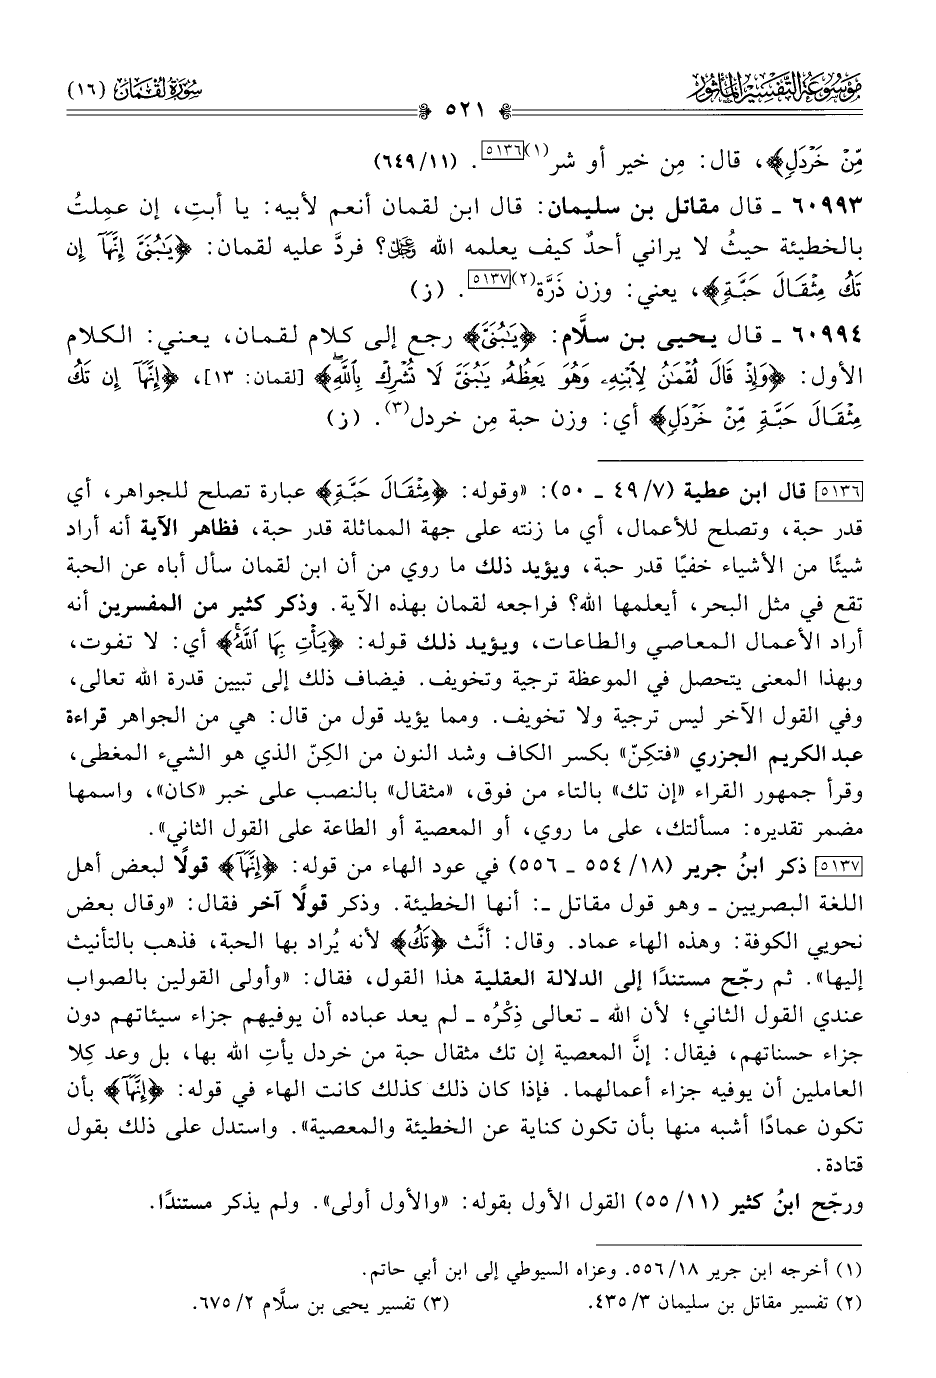 مَوْسُوعَة التَّفْسِيرِ المَأْثُور
سُورَةُ لُقْمَان (١٦)
٥٢١
مِّنْ خَرْدَلٍ﴾، قال: مِن خير أو شر(١)[٥١٣٦]. (١١/ ٦٤٩)
٦٠٩٩٣ ـ قال مقاتل بن سليمان: قال ابن لقمان أنعم لأبيه: يا أبتِ، إن عمِلتُ
بالخطيئة حيثُ لا يراني أحدٌ كيف يعلمه الله ﷻ؟ فردَّ عليه لقمان: ﴿يَٰبُنَيَّ إِنَّهَآ إِن
تَكُ مِثْقَالَ حَبَّةٍ﴾، يعني: وزن ذَرَّة(٢)[٥١٣٧]. (ز)
٦٠٩٩٤ ـ قال يحيى بن سلَّام: ﴿يَٰبُنَيَّ﴾ رجع إلى كلام لقمان، يعني: الكلام
الأول: ﴿وَإِذْ قَالَ لُقْمَٰنُ لِٱبْنِهِۦ وَهُوَ يَعِظُهُۥ يَٰبُنَيَّ لَا تُشْرِكْ بِٱللَّهِۖ﴾ [لقمان: ١٣]، ﴿إِنَّهَآ إِن تَكُ
مِثْقَالَ حَبَّةٍ مِّنْ خَرْدَلٍ﴾ أي: وزن حبة مِن خردل(٣). (ز)
[٥١٣٦] قال ابن عطية (٧/ ٤٩ ـ ٥٠): «وقوله: ﴿مِثْقَالَ حَبَّةٍ﴾ عبارة تصلح للجواهر، أي
قدر حبة، وتصلح للأعمال، أي ما زنته على جهة المماثلة قدر حبة، فظاهر الآية أنه أراد
شيئًا من الأشياء خفيًا قدر حبة، ويؤيد ذلك ما روي من أن ابن لقمان سأل أباه عن الحبة
تقع في مثل البحر، أيعلمها الله؟ فراجعه لقمان بهذه الآية. وذكر كثير من المفسرين أنه
أراد الأعمال المعاصي والطاعات، ويؤيد ذلك قوله: ﴿يَأْتِ بِهَا ٱللَّهُۚ﴾ أي: لا تفوت،
وبهذا المعنى يتحصل في الموعظة ترجية وتخويف. فيضاف ذلك إلى تبيين قدرة الله تعالى،
وفي القول الآخر ليس ترجية ولا تخويف. ومما يؤيد قول من قال: هي من الجواهر قراءة
عبد الكريم الجزري «فتكِنّ» بكسر الكاف وشد النون من الكِنّ الذي هو الشيء المغطى،
وقرأ جمهور القراء «إن تك» بالتاء من فوق، «مثقال» بالنصب على خبر «كان»، واسمها
مضمر تقديره: مسألتك، على ما روي، أو المعصية أو الطاعة على القول الثاني».
[٥١٣٧] ذكر ابنُ جرير (١٨/ ٥٥٤ ـ ٥٥٦) في عود الهاء من قوله: ﴿إِنَّهَآ﴾ قولًا لبعض أهل
اللغة البصريين ـ وهو قول مقاتل ـ: أنها الخطيئة. وذكر قولًا آخر فقال: «وقال بعض
نحويي الكوفة: وهذه الهاء عماد. وقال: أنَّث ﴿تَكُ﴾ لأنه يُراد بها الحبة، فذهب بالتأنيث
إليها». ثم رجّح مستندًا إلى الدلالة العقلية هذا القول، فقال: «وأولى القولين بالصواب
عندي القول الثاني؛ لأن الله ـ تعالى ذِكْرُه ـ لم يعد عباده أن يوفيهم جزاء سيئاتهم دون
جزاء حسناتهم، فيقال: إنَّ المعصية إن تك مثقال حبة من خردل يأتِ الله بها، بل وعد كِلا
العاملين أن يوفيه جزاء أعمالهما. فإذا كان ذلك كذلك كانت الهاء في قوله: ﴿إِنَّهَآ﴾ بأن
تكون عمادًا أشبه منها بأن تكون كناية عن الخطيئة والمعصية». واستدل على ذلك بقول
قتادة.
ورجّح ابنُ كثير (١١/ ٥٥) القول الأول بقوله: «والأول أولى». ولم يذكر مستندًا.
(١) أخرجه ابن جرير ١٨/ ٥٥٦. وعزاه السيوطي إلى ابن أبي حاتم.
(٢) تفسير مقاتل بن سليمان ٣/ ٤٣٥. (٣) تفسير يحيى بن سلَّام ٢/ ٦٧٥.